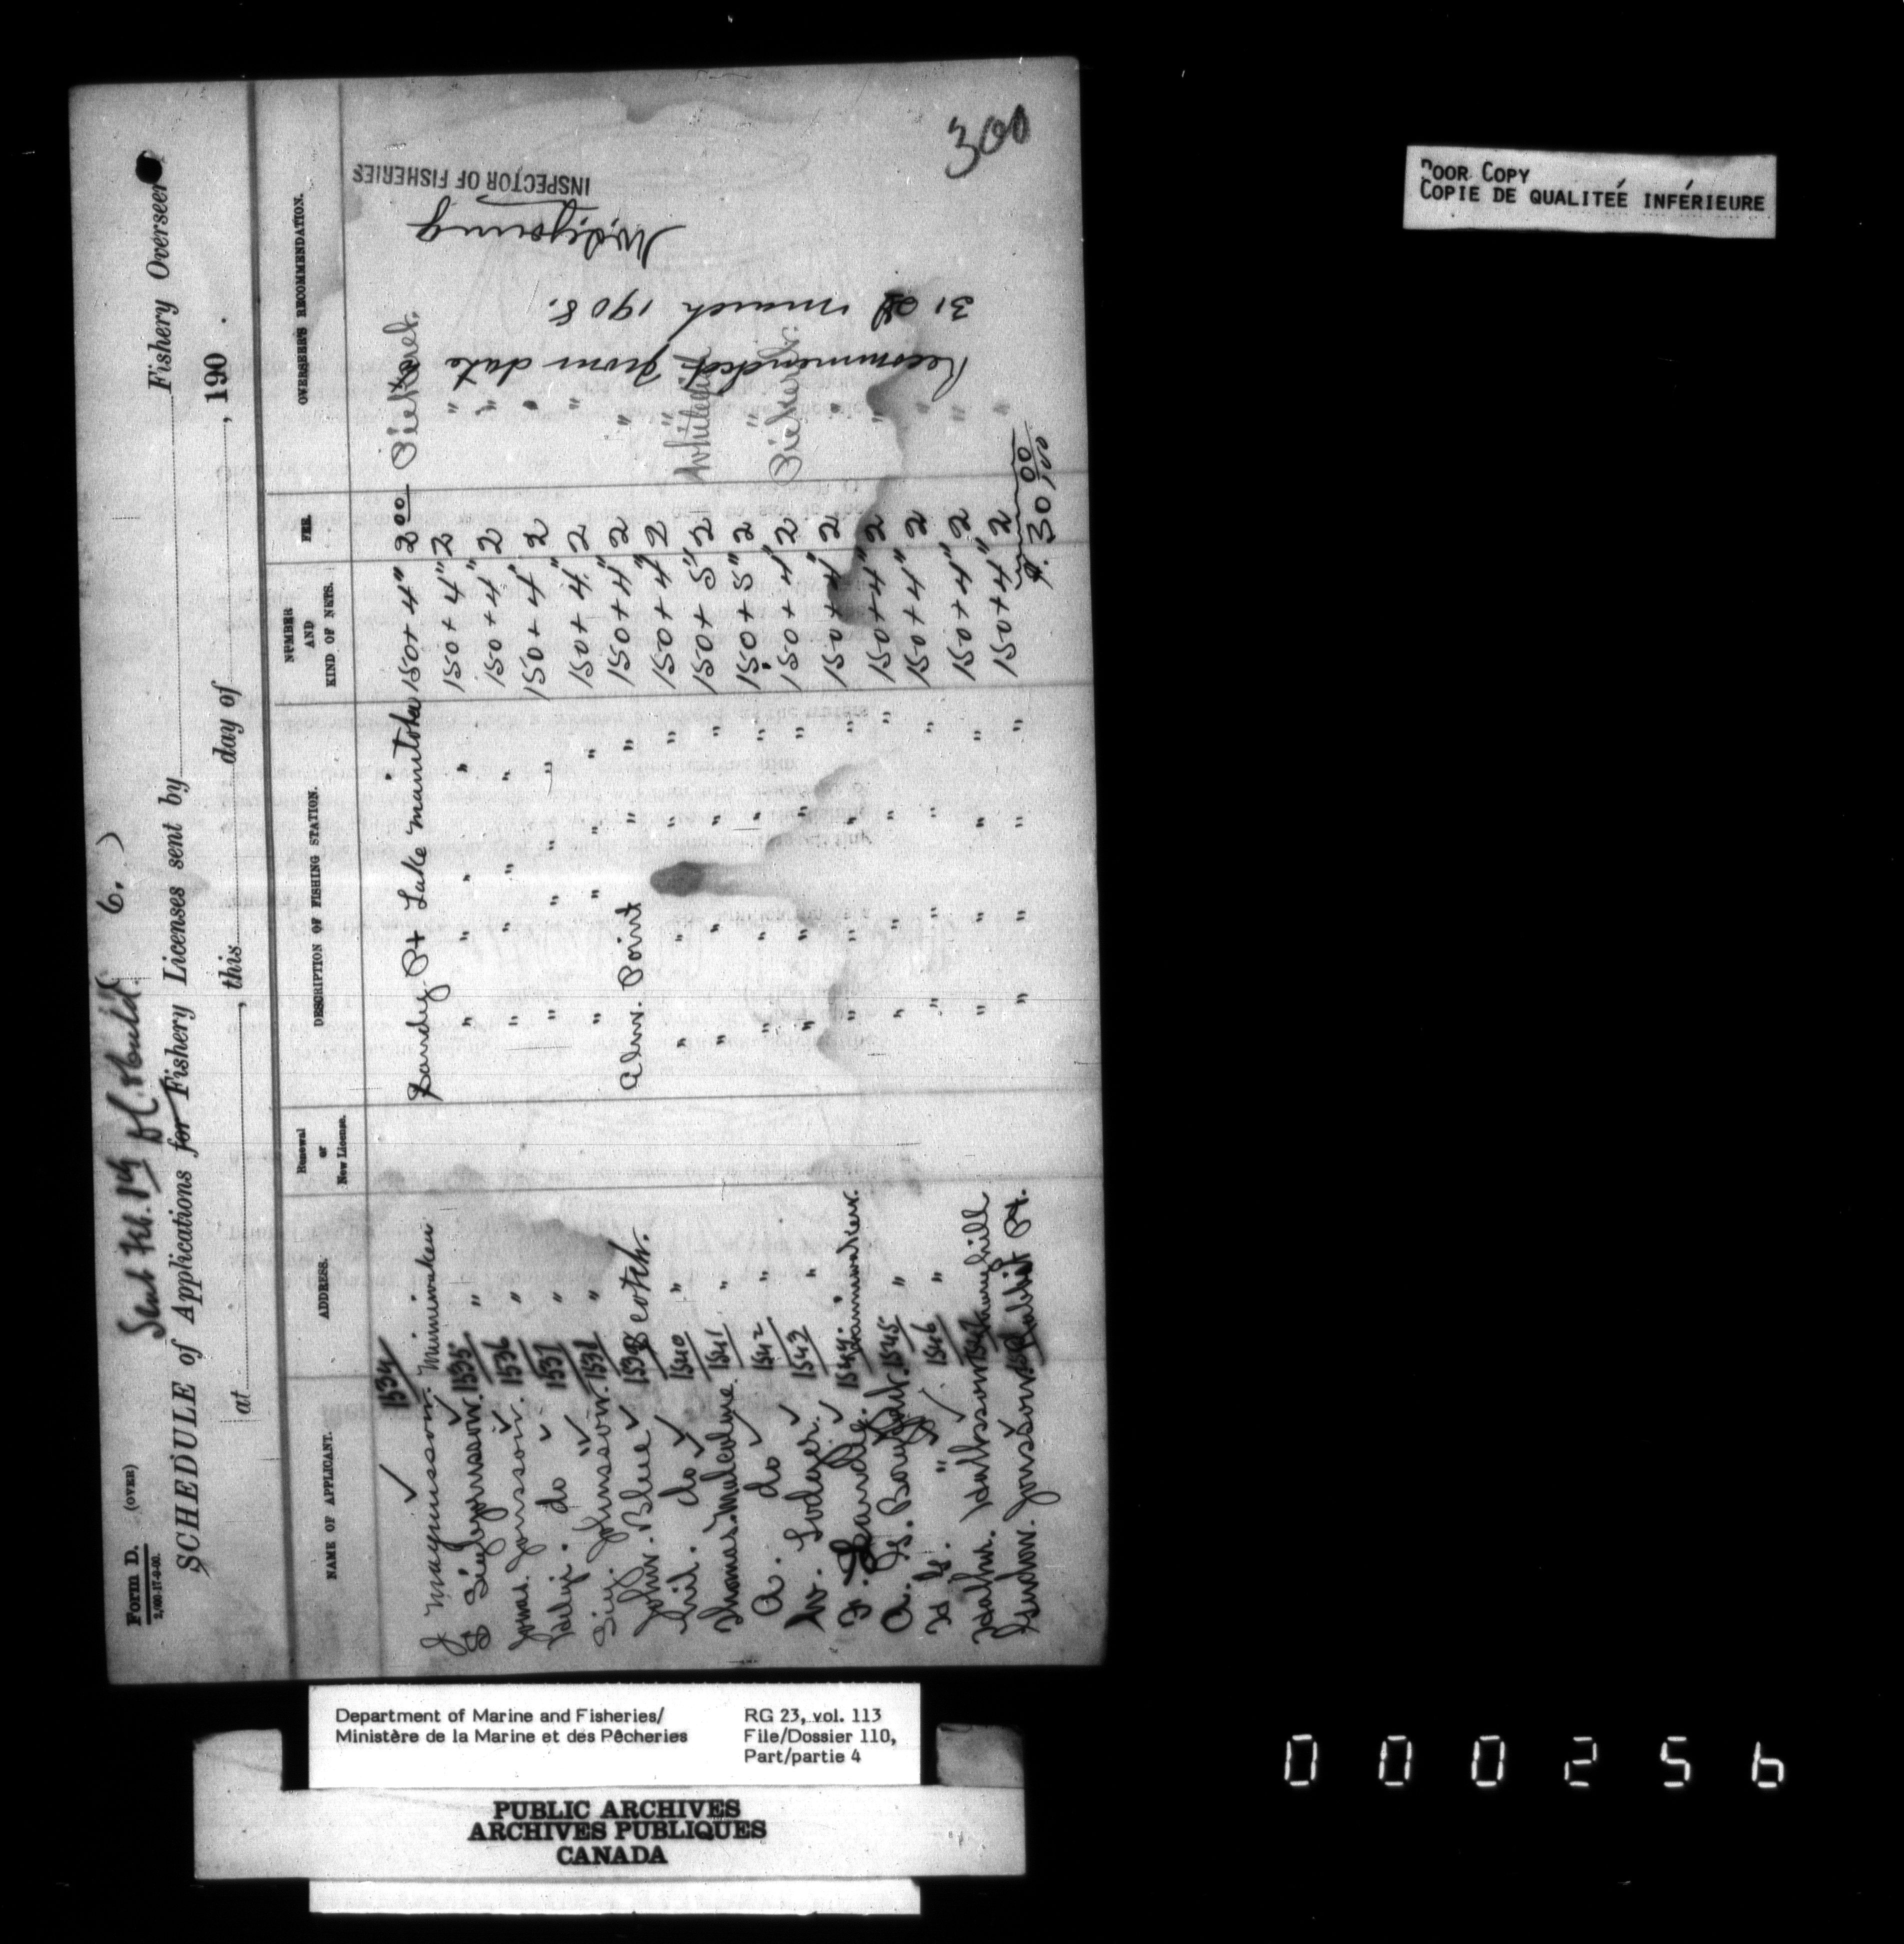 Form D. (OVER)
2,000-17-9-00.
6.
SCHEDULE of Applications for Fishery Licenses sent by Fishery Overseer
at , this day of , 190 .
NAME OF APPLICANT. ADDRESS. Renewal or New License. DESCRIPTION OF FISHING STATION. NUMBER AND KIND OF NETS. FEE. OVERSEER'S RECOMMENDATION.
J Magnusson. 1534 Minniwaken Sandy Pt Lake Manitoba 150 + 4" 2 00 Pickerel.
1535 " " " " " 150 + 4" 2 "
Jonas. Jonsson. 1536 " " " " " 150 + 4" 2 "
Helgi. do 1537 " " " " " 150 + 4" 2 "
Sig. Johnsson. 1538 " " " " " 150 + 4" 2 "
John. Blue 1539 Scotch. Elm. Point " " 150 + 4" 2 "
do 1540 " " " " " 150 + 4" 2 "
Thomas. Malcolme. 1541 " " " " " 150 + 5" 2 Whitefish
A. do 1542 " " " " " 150 + 5" 2 "
1543 " " " " " 150 + 4" 2 Pickerel.
1544 " " " " 150 + 4" 2 "
A. 1545 " " " " " 150 + 4" 2 "
H 1546 " " " " " 150 + 4" 2 "
1547 " " " " 150 + 4" 2 "
Jonsson Rabbit Pt. " " " " 150 + 4" 2 "
$ 30,00
Recommended from date
31 st March 1908.
W.S. Young
INSPECTOR OF FISHERIES
300
POOR COPY
COPIE DE QUALITÉE INFÉRIEURE
Department of Marine and Fisheries/
Ministère de la Marine et des Pêcheries
RG 23, vol. 113
File/Dossier 110,
Part/partie 4
PUBLIC ARCHIVES
ARCHIVES PUBLIQUES
CANADA
000256